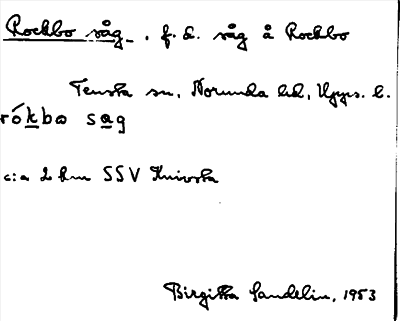 Rockbo såg. f. d. såg å Rockbo
Tensta sn, Norunda hd, Upps. l.
rókba sag
c:a 2 km SSV Knivsta
Birgitta Sandelin, 1953